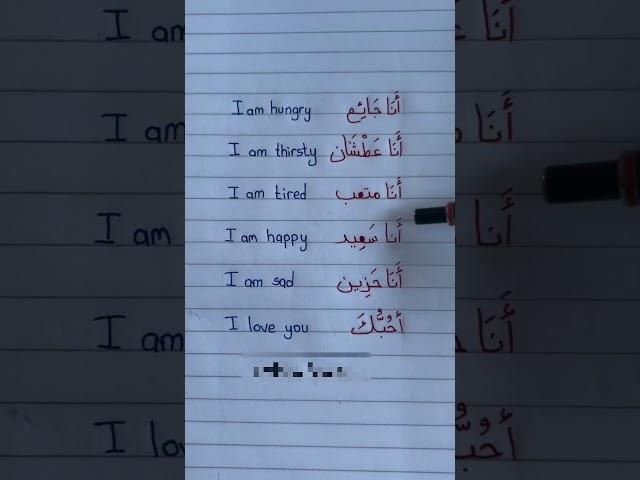 I am hungry أَنَا جَائِع
I am thirsty أَنَا عَطْشَان
I am tired أَنَا متعب
I am happy أَنَا سَعِيد
I am sad أَنَا حَزِين
I love you أحُبُّكَ